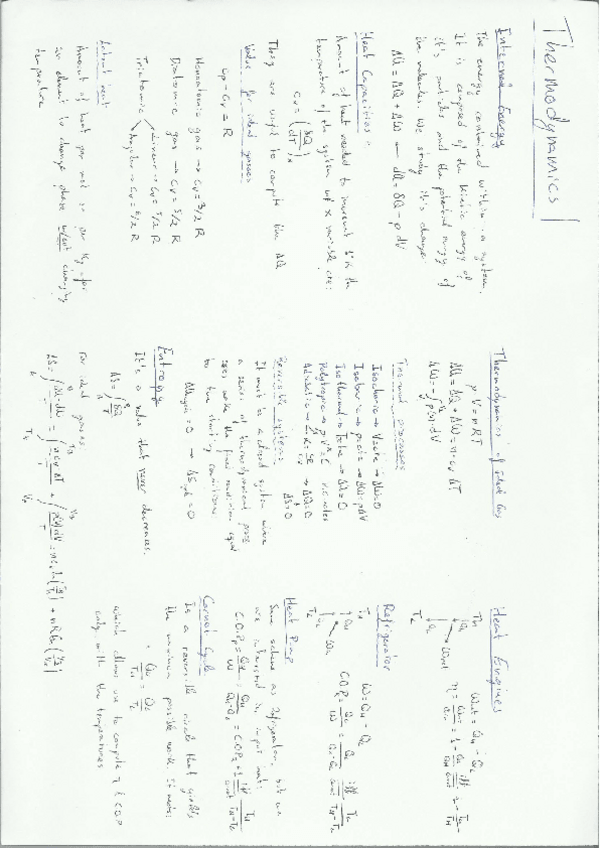 Thermodynamics
Internal Energy
The energy contained within a system.
It is composed of the kinetic energy of
it's particles and the potential energy of
the molecules. We study it's change.
ΔU = ΔQ + ΔW → dU = δQ - p dV
Heat Capacities:
Amount of heat needed to increment 1°K the
temperature of the system at x variable cte:
Cx = (δQ/dT)x
They are used to compute the ΔQ
Value for ideal gasses
Cp - Cv = R
Monoatomic gas → Cv = 3/2 R
Diatomic gas → Cv = 5/2 R
Triatomic
Linear → Cv = 5/2 R
Angular → Cv = 6/2 R
Latent heat
Amount of heat per mol or per Kg for
an element to change phase w/out changing
temperature
Thermodynamics of Ideal Gas
pV = nRT
ΔU = ΔQ + ΔW = n·cv ΔT
ΔW = -∫p(v)·dV
Thermal processes
Isochoric → V = cte → ΔW = 0
Isobaric → p = cte → ΔW = -pΔV
Isothermal → T = cte → ΔU = 0
Polytropic → pVᵏ = C
Adiabatic → ΔQ = 0
Reversible systems: ΔS = 0
It must be a closed system where
a series of thermodynamical processes
make the final condition equal
to the starting conditions
ΔUcycle = 0 → ΔScycle = 0
Entropy
It's a value that never decreases.
ΔS = ∫ δQ/T
For ideal gasses
ΔS = ∫ (dU - dW)/T = ∫ n cv dT/T + ∫ p(v) dV/T = n cv ln(T2/T1) + nR ln(V2/V1)
Heat Engines
TH
QH
Wout
QL
TL
Wout = QH - QL
η = Wout/QH = 1 - QL/QH = 1 - TL/TH
Refrigerator
TH
QH
Win
QL
TL
W = QH - QL
COPR = QL/W = QL/(QH - QL) = TL/(TH - TL)
Heat Pump
Same scheme as Refrigerator, but we
are interested in input heat:
COPP = QH/W = QH/(QH - QL) = COPR + 1 = TH/(TH - TL)
Carnot Cycle
Is a reversible cicle that yields
the maximum possible work. It makes
QH/TH = QL/TL
which allows us to compute η & COP
only with the temperatures